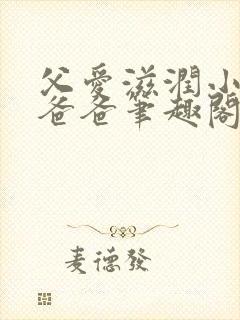 父愛滋潤小
爸爸筆趣閣
麦德發